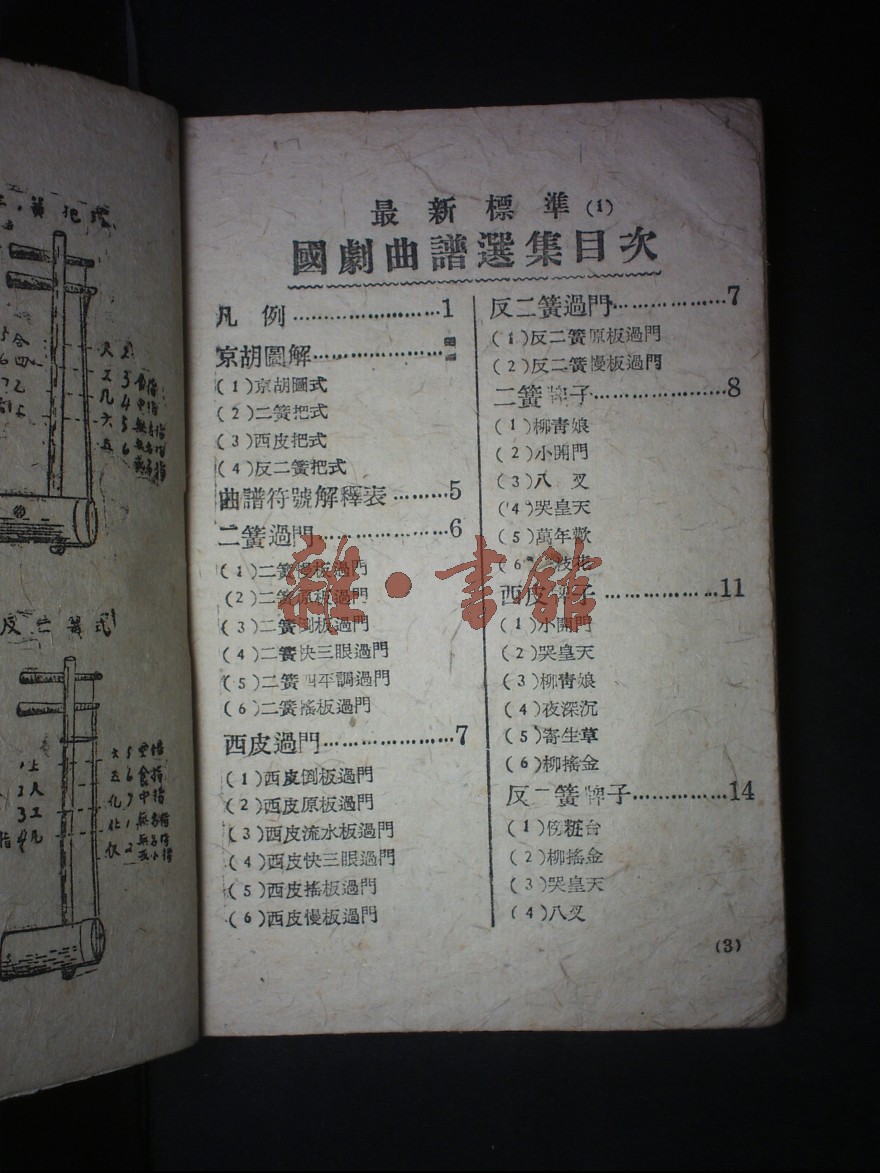 最新標準(1)
國劇曲譜選集目次
凡例……………………1
京胡圖解……………………
(1)京胡圖式
(2)二簧把式
(3)西皮把式
(4)反二簧把式
曲譜符號解釋表………5
二簧過門……………………6
(1)二簧慢板過門
(2)二簧原板過門
(3)二簧倒板過門
(4)二簧快三眼過門
(5)二簧四平調過門
(6)二簧搖板過門
西皮過門……………………7
(1)西皮倒板過門
(2)西皮原板過門
(3)西皮流水板過門
(4)西皮快三眼過門
(5)西皮搖板過門
(6)西皮慢板過門
反二簧過門……………………7
(1)反二簧原板過門
(2)反二簧慢板過門
二簧牌子……………………8
(1)柳青娘
(2)小開門
(3)八叉
(4)哭皇天
(5)萬年歡
(6)枝花
西皮牌子……………………11
(1)小開門
(2)哭皇天
(3)柳青娘
(4)夜深沉
(5)寄生草
(6)柳搖金
反二簧牌子……………14
(1)傍粧台
(2)柳搖金
(3)哭皇天
(4)八叉
(3)
雜·書館
簧把式
反二簧式